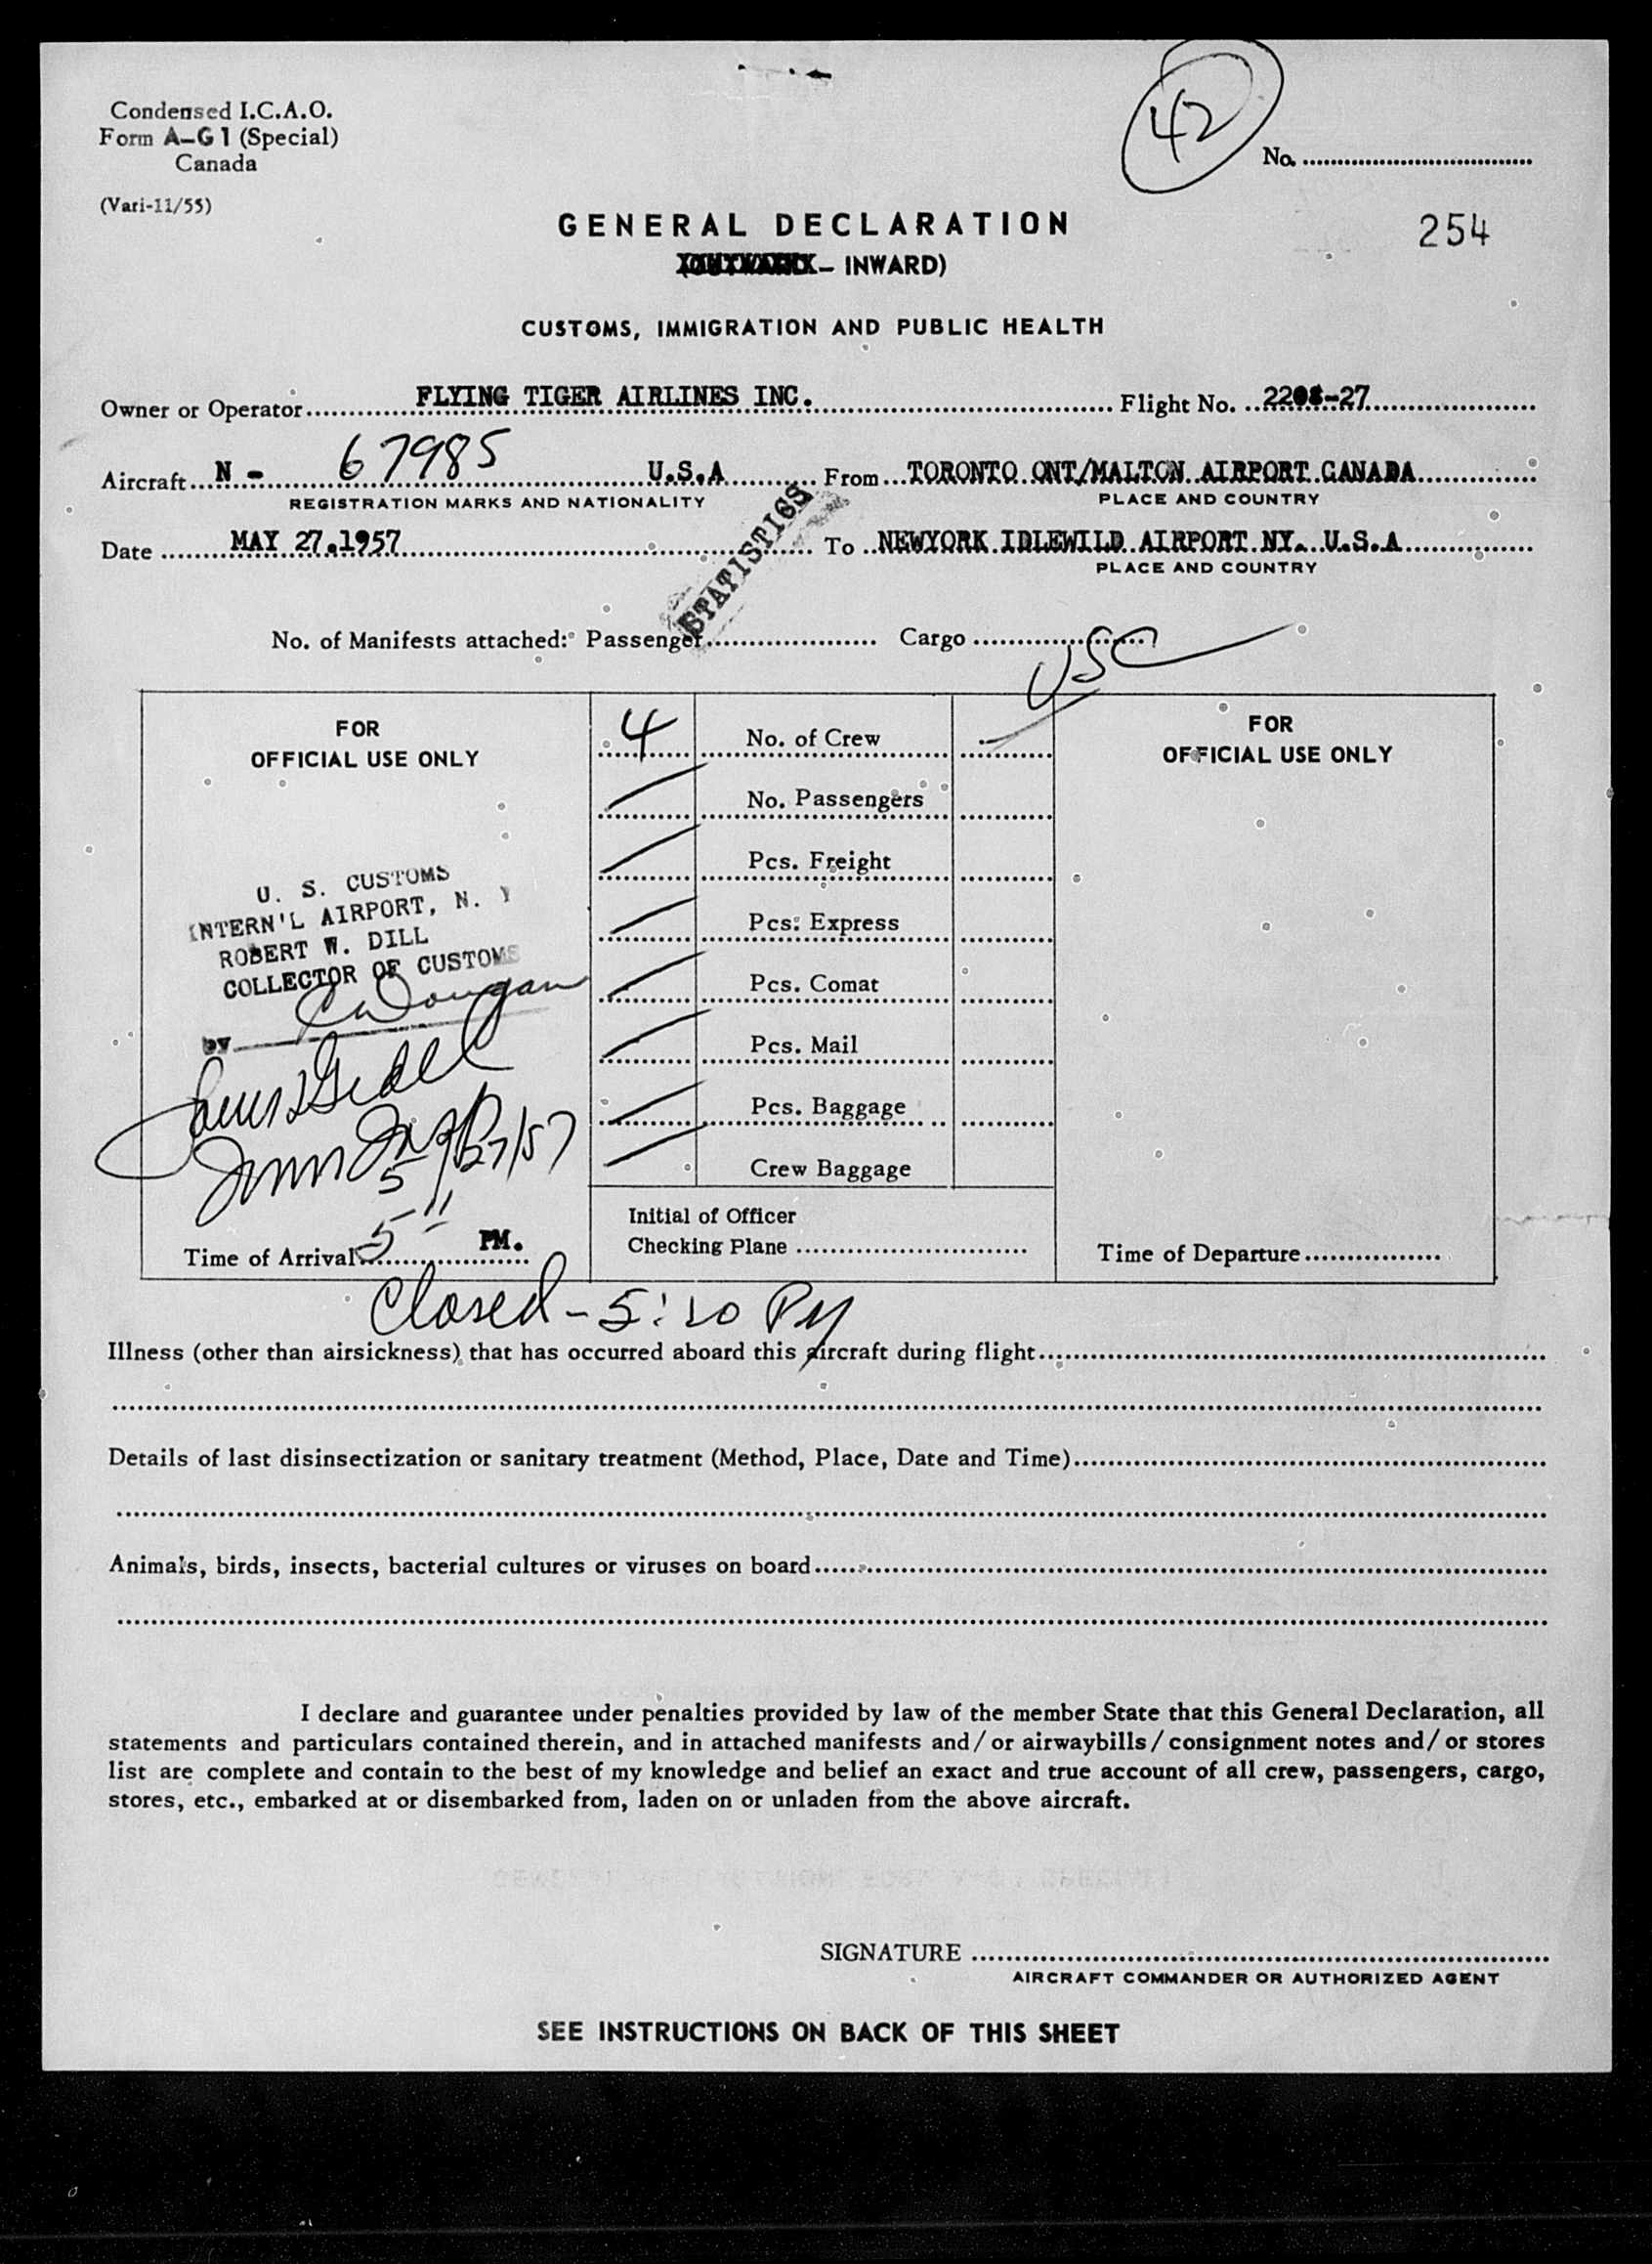 Condensed I.C.A.O.
Form A-G1 (Special)
Canada
(Vari-11/55)
42
No.
254
GENERAL DECLARATION
- INWARD)
CUSTOMS, IMMIGRATION AND PUBLIC HEALTH
Owner or Operator FLYING TIGER AIRLINES INC. Flight No. 2208-27
Aircraft N - 67985 U.S.A From TORONTO ONT/MALTON AIRPORT CANADA
REGISTRATION MARKS AND NATIONALITY PLACE AND COUNTRY
Date MAY 27.1957 To NEWYORK IDLEWILD AIRPORT NY. U.S.A
PLACE AND COUNTRY
STATISTICS
No. of Manifests attached: Passenger Cargo
USC
FOR
OFFICIAL USE ONLY
4 No. of Crew
FOR
OFFICIAL USE ONLY
No. Passengers
Pcs. Freight
Pcs. Express
Pcs. Comat
Pcs. Mail
Pcs. Baggage
Crew Baggage
U. S. CUSTOMS
INTERN'L AIRPORT, N. Y
ROBERT W. DILL
COLLECTOR OF CUSTOMS
by
5/27/57
Time of Arrival 5 11 PM.
Initial of Officer
Checking Plane
Time of Departure
Closed - 5:20 PM
Illness (other than airsickness) that has occurred aboard this aircraft during flight
Details of last disinsectization or sanitary treatment (Method, Place, Date and Time)
Animals, birds, insects, bacterial cultures or viruses on board
I declare and guarantee under penalties provided by law of the member State that this General Declaration, all
statements and particulars contained therein, and in attached manifests and/or airwaybills/consignment notes and/or stores
list are complete and contain to the best of my knowledge and belief an exact and true account of all crew, passengers, cargo,
stores, etc., embarked at or disembarked from, laden on or unladen from the above aircraft.
SIGNATURE
AIRCRAFT COMMANDER OR AUTHORIZED AGENT
SEE INSTRUCTIONS ON BACK OF THIS SHEET